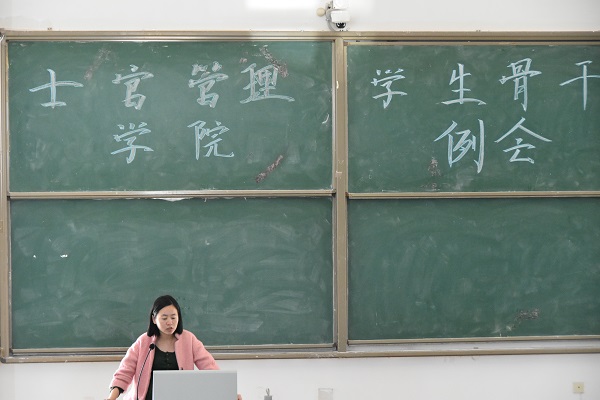 士官管理
学院
学生骨干
例会